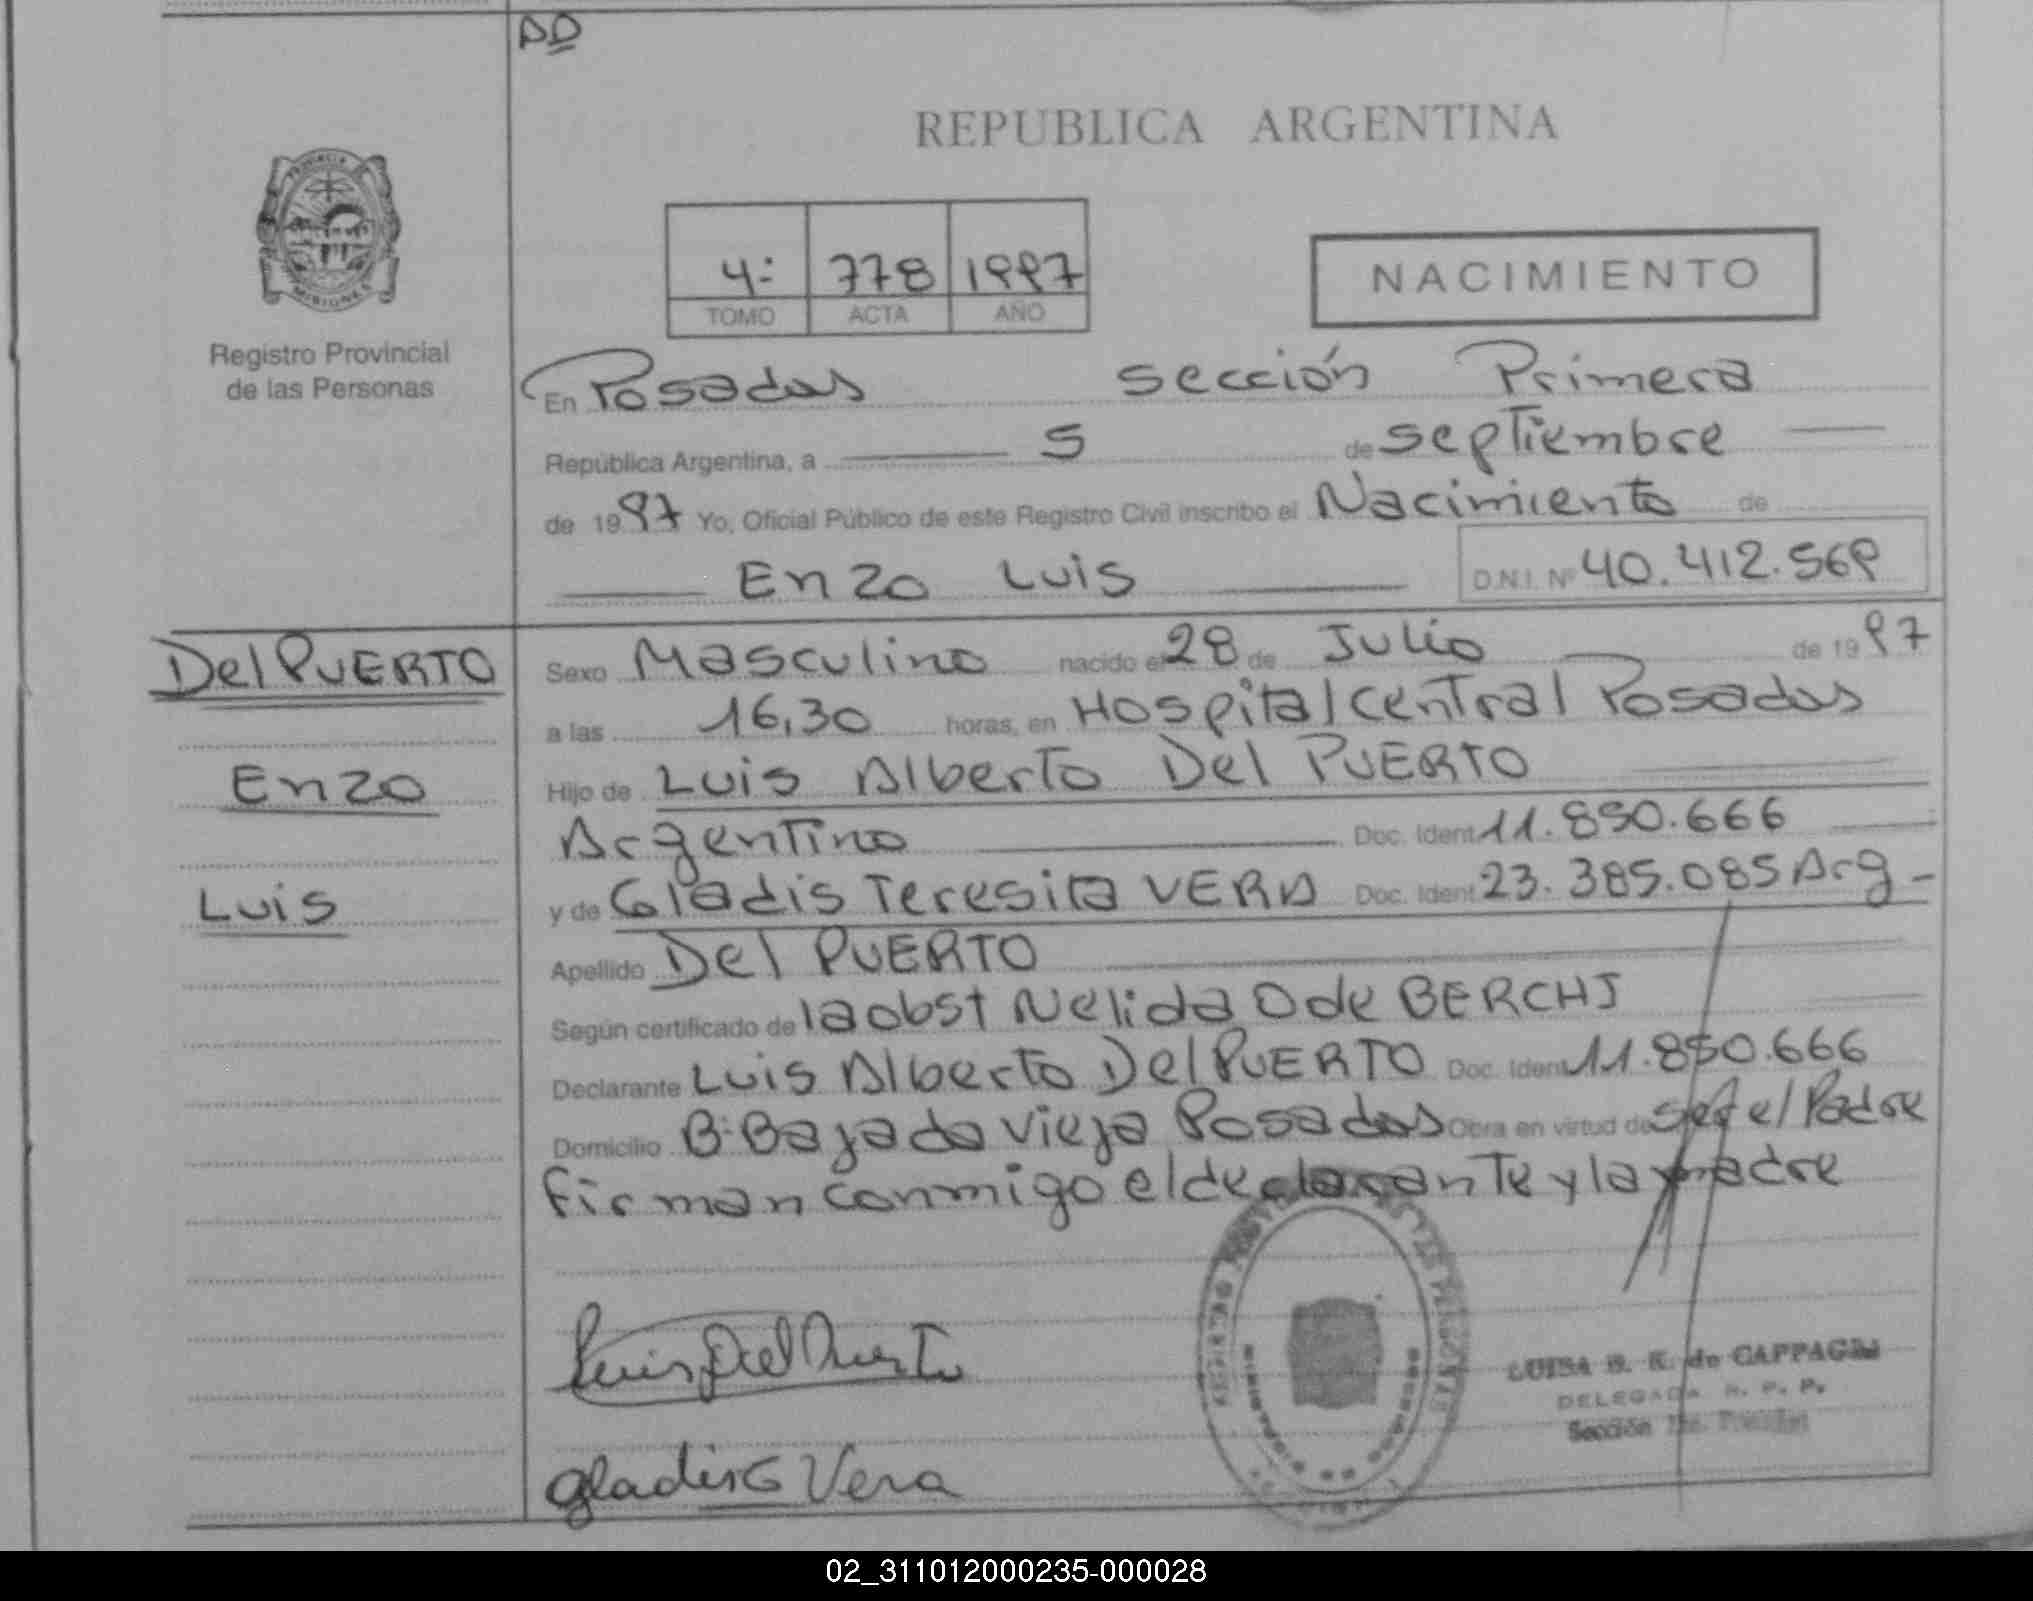 DD
REPUBLICA ARGENTINA
PROVINCIA
MISIONES
Registro Provincial
de las Personas
4: 778 1997
TOMO ACTA AÑO
NACIMIENTO
En Posadas sección Primera
República Argentina, a 5 de septiembre
de 1997 Yo, Oficial Público de este Registro Civil inscribo el Nacimiento de
Enzo Luis D.N.I. Nº 40.412.569
Del PUERTO
Enzo
Luis
Sexo Masculino nacido el 28 de Julio de 1997
a las 16,30 horas, en Hospital Central Posadas
Hijo de Luis Alberto Del PUERTO
Argentino Doc. Ident 11.850.666
y de Gladis Teresita VERA Doc. Ident 23.385.085 Arg-
Apellido Del PUERTO
Según certificado de la obst Nelida O de BERCHI
Declarante Luis Alberto Del PUERTO Doc. Ident 11.850.666
Domicilio B: Bajada Vieja Posadas Obra en virtud de ser el Padre
Firman conmigo el declarante y la madre
Luis Del Puerto
Gladis Vera
LUISA B. K. de
DELEGADA R. P. P.
Sección
02_311012000235-000028